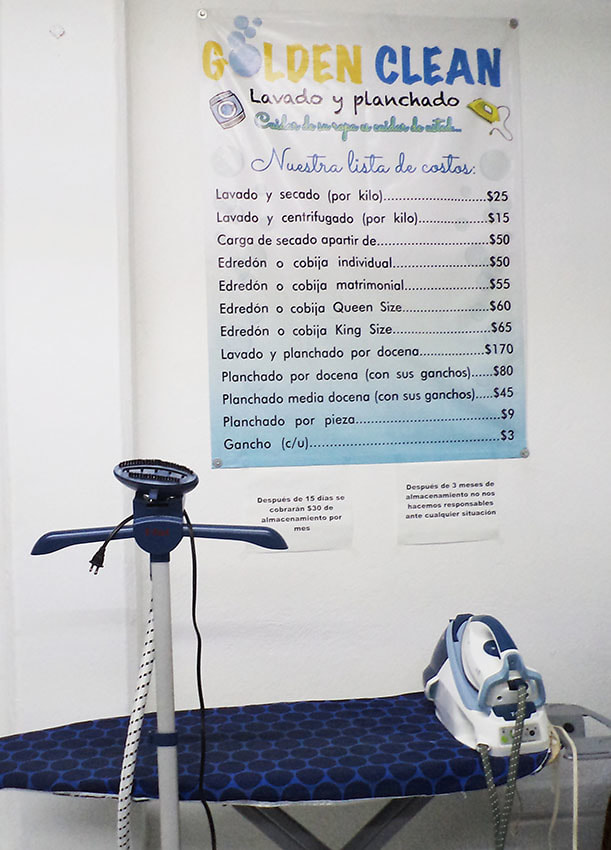 GOLDEN CLEAN
Lavado y planchado
Cuidar de su ropa es cuidar de usted...
Nuestra lista de costos:
Lavado y secado (por kilo)............................$25
Lavado y centrifugado (por kilo)..................$15
Carga de secado apartir de...........................$50
Edredón o cobija individual........................$50
Edredón o cobija matrimonial.....................$55
Edredón o cobija Queen Size......................$60
Edredón o cobija King Size.........................$65
Lavado y planchado por docena................$170
Planchado por docena (con sus ganchos)......$80
Planchado media docena (con sus ganchos).....$45
Planchado por pieza...................................$9
Gancho (c/u)..............................................$3
Después de 15 días se
cobrarán $30 de
almacenamiento por
mes
Después de 3 meses de
almacenamiento no nos
hacemos responsables
ante cualquier situación